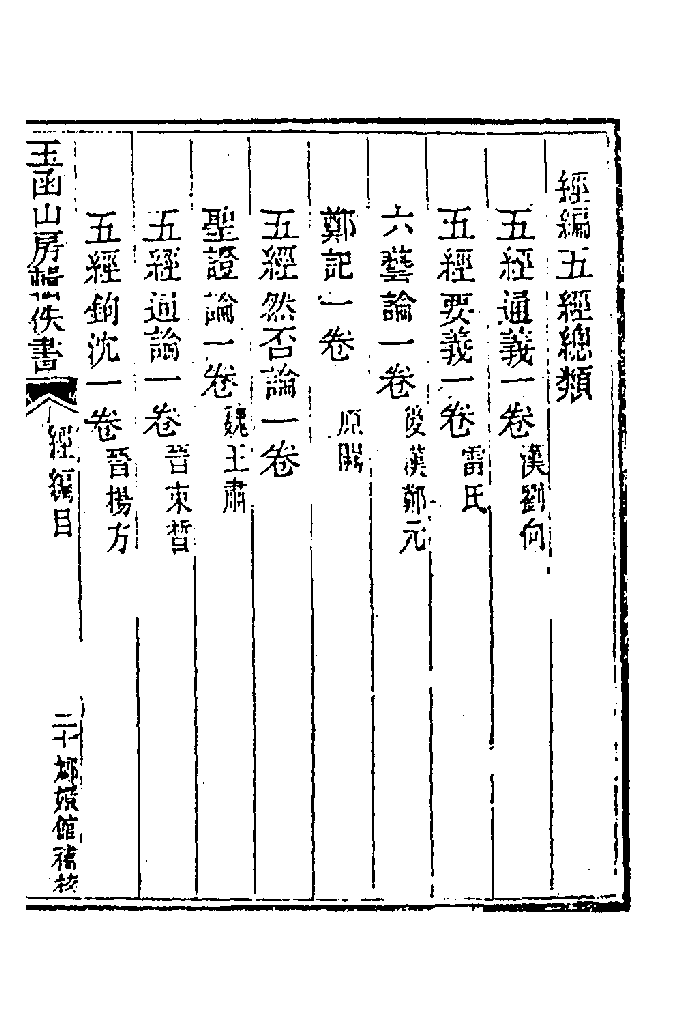 經編五經總類
五經通義一卷 漢劉向
五經要義一卷 雷氏
六藝論一卷 後漢鄭元
鄭記一卷 原闕
五經然否論一卷
聖證論一卷 魏王肅
五經通論一卷 晉束晳
五經鉤沈一卷 晉楊方
玉函山房輯佚書 經編目 二十 嫏嬛館補校